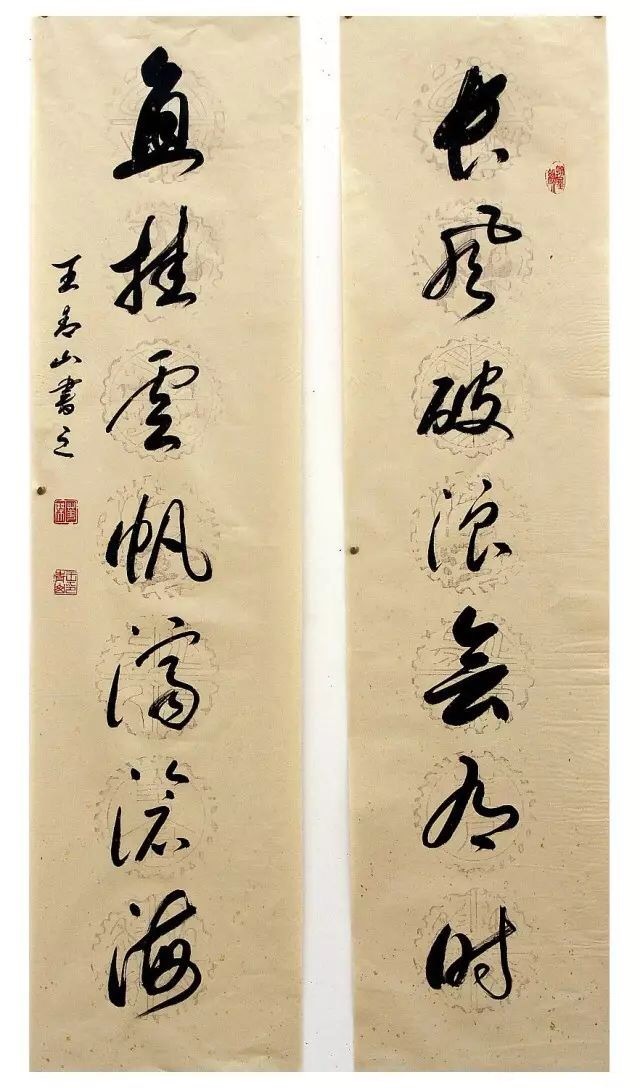 长风破浪会有时
直挂云帆济沧海
王寿山书之